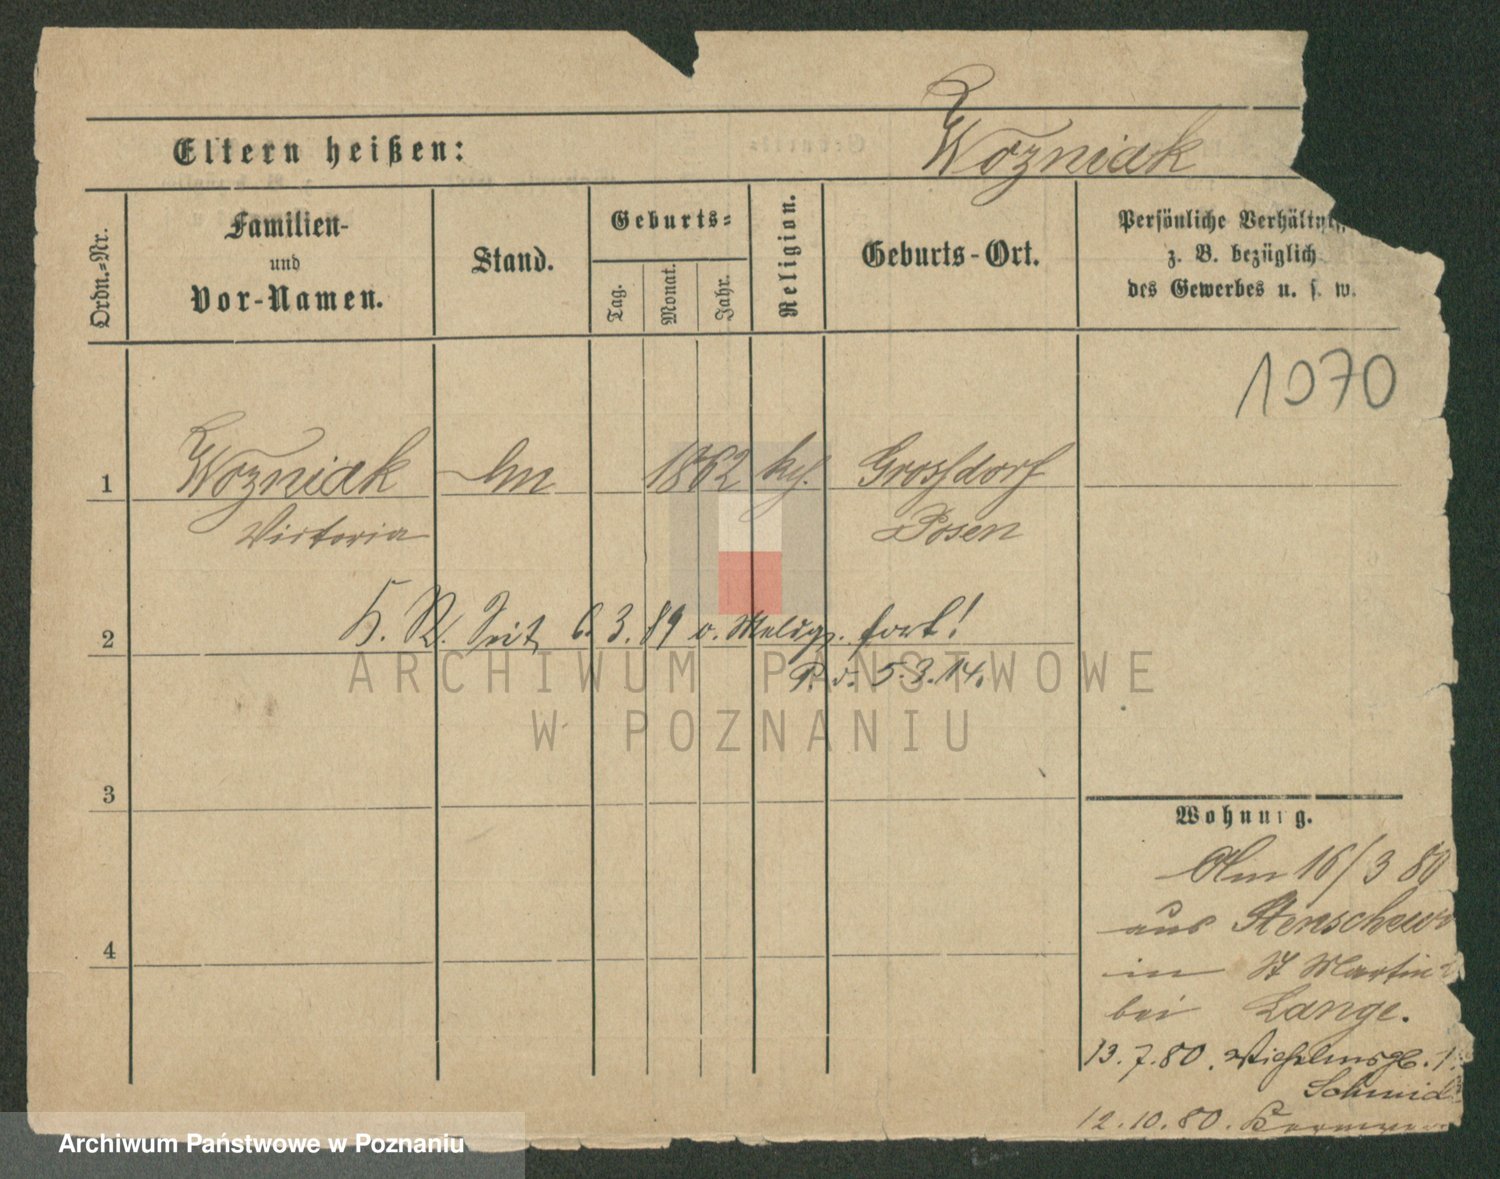 Woźniak
Eltern heißen:
Ordn.-Nr.
Familien-
und
Vor-Namen.
Stand.
Geburts-
Tag.
Monat.
Jahr.
Religion.
Geburts-Ort.
Persönliche Verhältniss
z. B. bezüglich
des Gewerbes u. s. w.
1070
1 Woźniak 1862 kth. Grossdorf
Victoria Posen
2 Seit 6.3.89 o. Meldg. fort!
P. d. 5.3.14.
3
Wohnung.
Am 16/3 80
aus Stenschewo
in St Martin
bei Lange.
4
13.7.80. Wilhelmspl. 1
Schmid
12.10.80.
ARCHIWUM PAŃSTWOWE
W POZNANIU
Archiwum Państwowe w Poznaniu